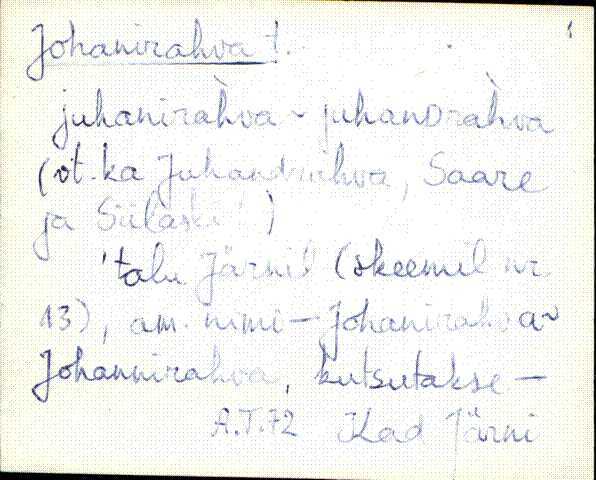 Johanirahva t.
juhanirah̀va ~ juhanDrah̀va
(vt. ka Juhandrahva, Saare
ja Siilaski)
'talu Järnil (skeemil nr.
13), am. nimi – Johanirahva ~
Johannirahva, kutsutakse –
A.T.72 Kad Järni